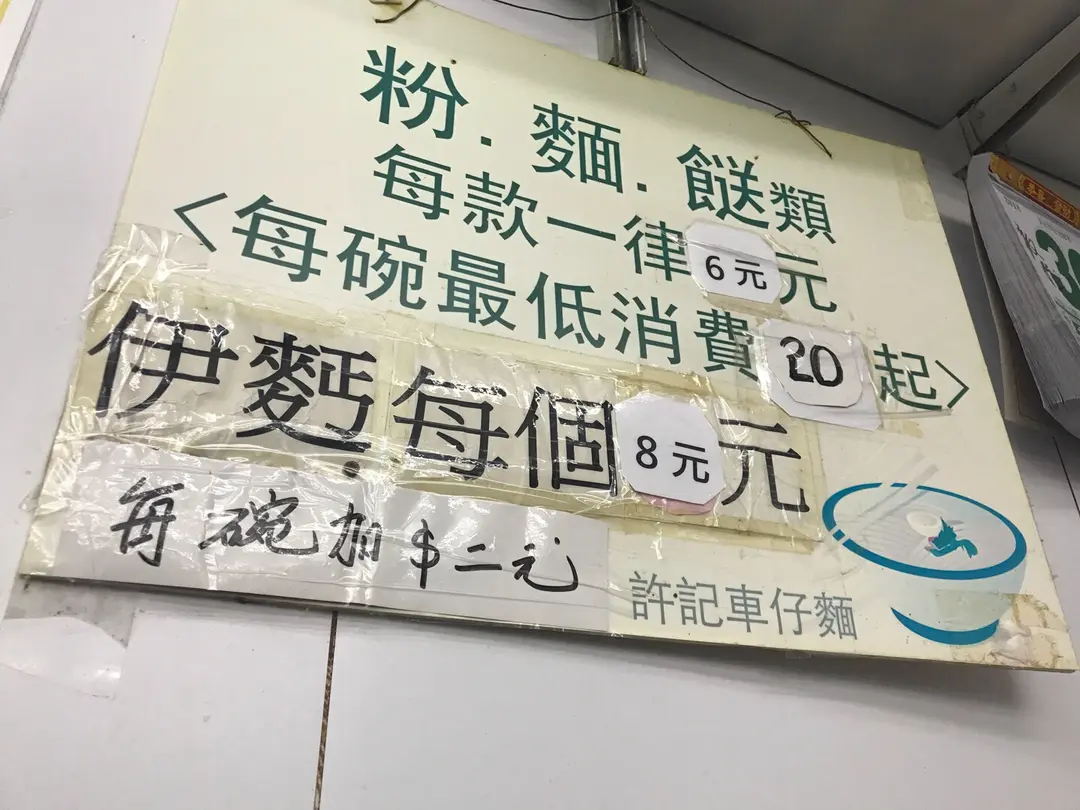 粉.麵.餸類
每款一律6元元
<每碗最低消費20起>
伊麪每個8元元
每碗加$二元
許記車仔麵